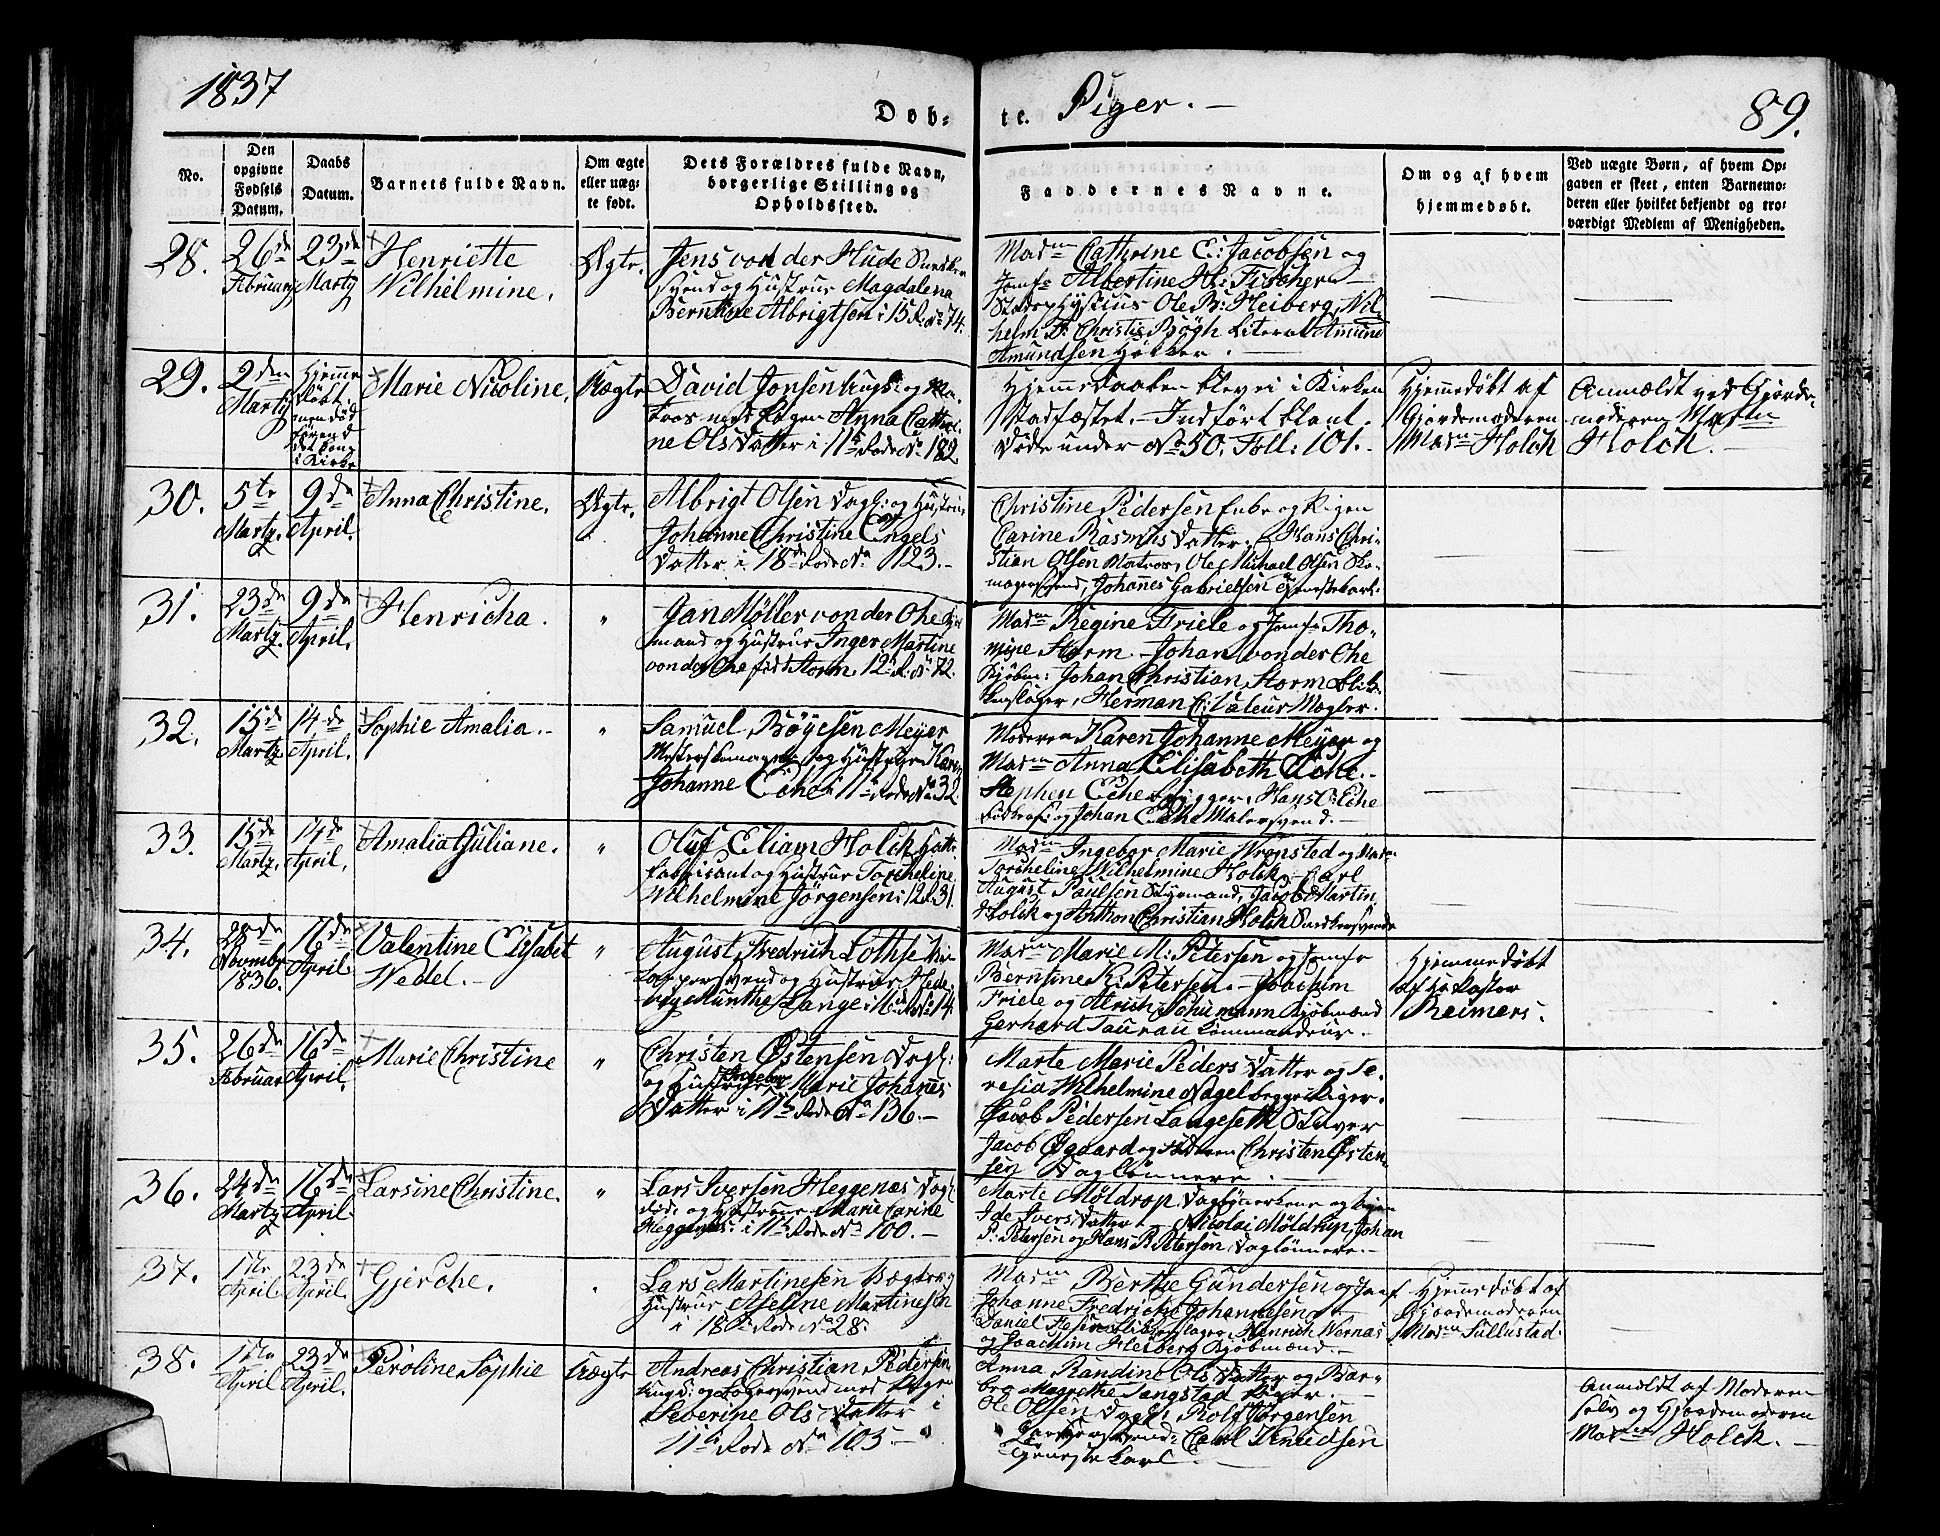 1837
Døb-
te. Piger. —
89.
No.
Den opgivne Fødsels Datum.
Daabs Datum.
Barnets fulde Navn.
Om ægte eller uæg- te født.
Dets Forældres fulde Navn, borgerlige Stilling og Opholdssted.
Faddernes Navne.
Om og af hvem hjemmedøbt.
Ved uægte Børn, af hvem Op- gaven er skeet, enten Barnemo- deren eller hvilket bekjendt og tro- værdigt Medlem af Menigheden.
28. 26de Februar 23de Marty Henriette Wilhelmine. Ægte.
Jens von der Hude
svend og Hustrue Magdalena
Berntine Albrigtsen i 15 R. No 74.
Madm Cathrine C: Jacobsen og
Jomfr Albertine H: Fischer —
Stadsphysicus Ole B: Heiberg, Wil-
helm F: Christie Bøgh Literat Amund
Amundsen Høker.
29. 2den Marty Hjemme døbt Marie Nicoline. Uægte
David Jonsen Ungk: og Ma-
tros med Pigen Anna Cathri-
ne Ols Datter i 11te Rode No 182
Hjemmedaaben blev ei i Kirken
Stadfæstet. — Indført blant
Døde under No 50. Foll: 101. —
Hjemmedøbt af
Gjordemoderen
Madm Holck
Anmeldt ved Gjorde-
moderen Madm
Holck. —
30. 5te Martz. 9de April. Anna Christine. Ægte.
Albrigt Olsen Dagl: og Hustrue
Johanne Christine Engels
Datter i 18de Rode No 123. —
Christine Pedersen Enke og Pigen
Carine Rasmus Datter. — Hans Chri-
stian Olsen Matros, Ole Michael Olsen Sko-
magersvend, Johannes Gabrielsen Tjenestekarl.
31. 23de Martz. 9de April. Henricha. "
Jan Møller von der Ohe
mand og Hustrue Inger Martine
von der Ohe fød Storm, 12te R. No 72.
Madm Regine Friele og Jomfr Tho-
mine Storm — Johan von der Ohe
Kjøbm: Johan Christian Storm Blik-
kenslager, Herman C: Mægler.
32. 15de Martz. 14de April. Sophie Amalia. — "
Samuel Bøyesen Meyer
og Hustrue Karen
Johanne Eche i 11te Rode No 32
Moderen Karen Johanne Meyer og
Madm Anna Elisabeth Eche. —
Stephen Eche Brygger, Hans C: Eche
og Johan Eche Malersvend. —
33. 15de Martz. 14de April. Amalia Juliane. "
Oluf Eliam Holck Hatte-
fabricant og Hustrue Torcheline
Wilhelmine Jørgensen i 12 R 31.
Madm Ingebor Marie Wrangsted og Madm
Torcheline Wilhelmine Holck — Carl
August Paulsen Styrmand, Jacob Martin
Holck og Anthon Christian Holck Snedkersvende
34. Novembr 1836. 16de April. Valentine Elisabet Wedel. — "
August Fredrich Lothse
svend og Hustrue Hede-
vig Munthe Lange i 16de R. No 14.
Madm Marie M: Petersen og Jomfr
Berntine K: Petersen. — Joachim
Friele og Alrich Schumann Kjøbmænd
Gerhard Taurau Commandeur.
Hjemmedøbt
af Hr Pastor
Reimers.
35. 26de Februar 16de April. Marie Christine "
Christen Østensen Dagl:
og Hustrue Ingebor Marie Johanes
Datter i 11te Rode No 136. —
Marte Marie Peders Datter og Te-
resia Wilhelmine Nagel begge Piger.
Jacob Pedersen Langeseth
Jacob Øgaard og Faderen Christen Østen-
sen Daglønnere. —
36. 24de Martz 16de April. Larsine Christine. "
Lars Iversen Heggenæs Dagl
død og Hustrue Marie Carine
Heggenæs: i 11te Rode No 100. —
Marte Møldrop, Daglønnerkone og Pigen
Ide Ivers Datter — Nicolai Møldrup, Johan
P: Petersen og Hans R. Petersen, Daglønnere. —
37. 1ste April. 23de April. Gjerche. "
Lars Martinesen og
Hustrue Aseline Martinesen
i 18de Rode No 28.
Madm Berthe Gundersen og Jomf
Johanne Fredriche Johannesen —
Daniel Hinrich Wernas
og Joachim Heiberg Kjøbmænd. —
Hjemmedøbt af
Gjordemoderen
Madm Sullustad.
38. 1ste April 23de April. Peroline Sophie Uægte
Andreas Christian Pedersen
Ungk: og med Pigen
Severine Ols Datter i
11te Rode No 105. —
Anna Randine Ols Datter og Bar-
bra Magrethe Tangstad Piger. —
Ole Olsen Dagl: Rolf Jørgensen
Carl Knudsen
Tjenestekarl. —
Anmeldt af Moderen
selv og Gjordemoderen
Madm Holck. —